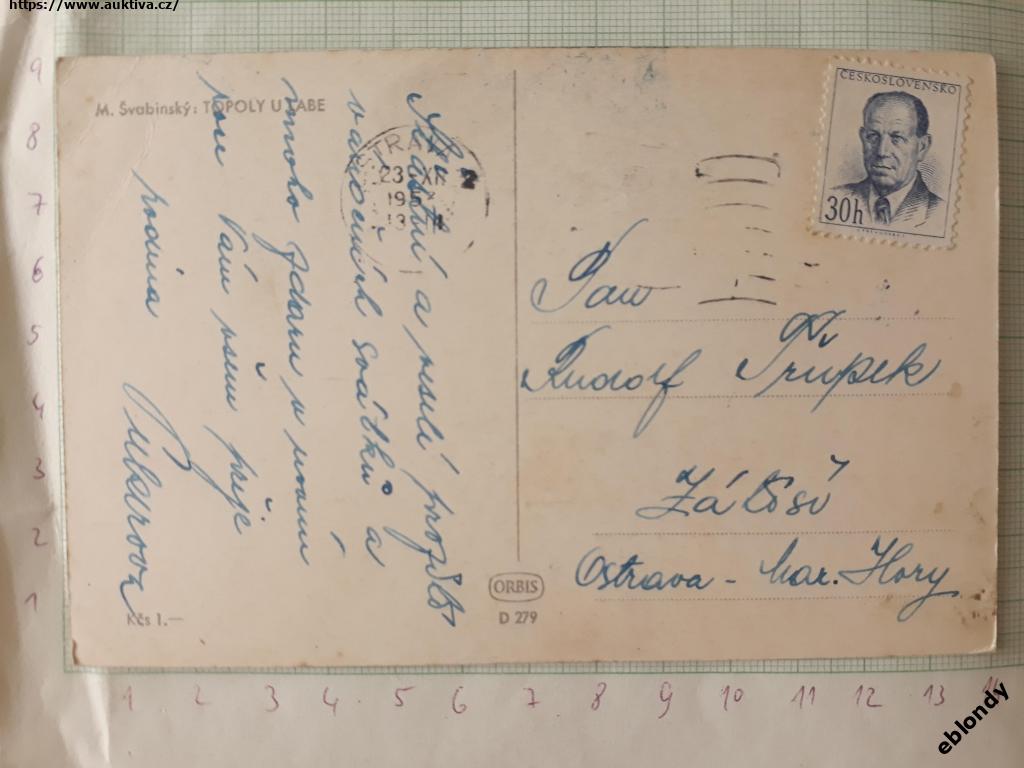 https://www.auktiva.cz/
M. Švabinský: TOPOLY U LABE
Šťastné a veselé prožití
vánočních svátků a
mnoho zdaru v novém
roce Vám všem přeje
rodina
Kčs 1.—
ORBIS
D 279
23 XII
ČESKOSLOVENSKO
30h
Pan
Rudolf
Zátiší
Ostrava - Mar. Hory
9
8
7
6
5
4
3
2
1
1 2 3 4 5 6 7 8 9 10 11 12 13 14
eblondy